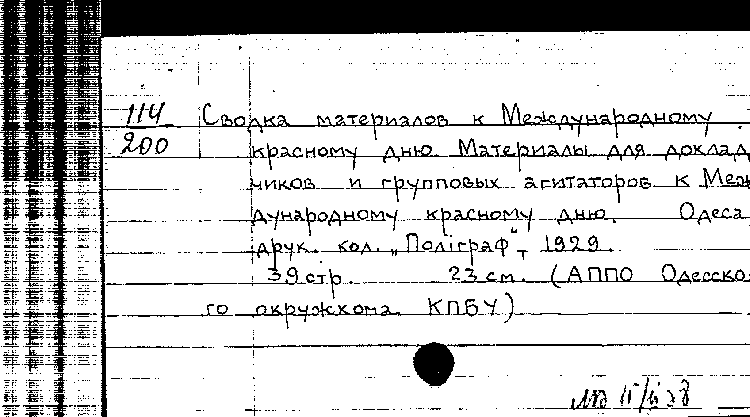 114 Сводка материалов к Международному
200 красному дню. Материалы для доклад
чиков и групповых агитаторов к Меж
дународному красному дню. Одеса
друк. кол. „Поліграф“, 1929.
39 стр. 23 см. (АППО Одесско
го окружкома КПБУ)